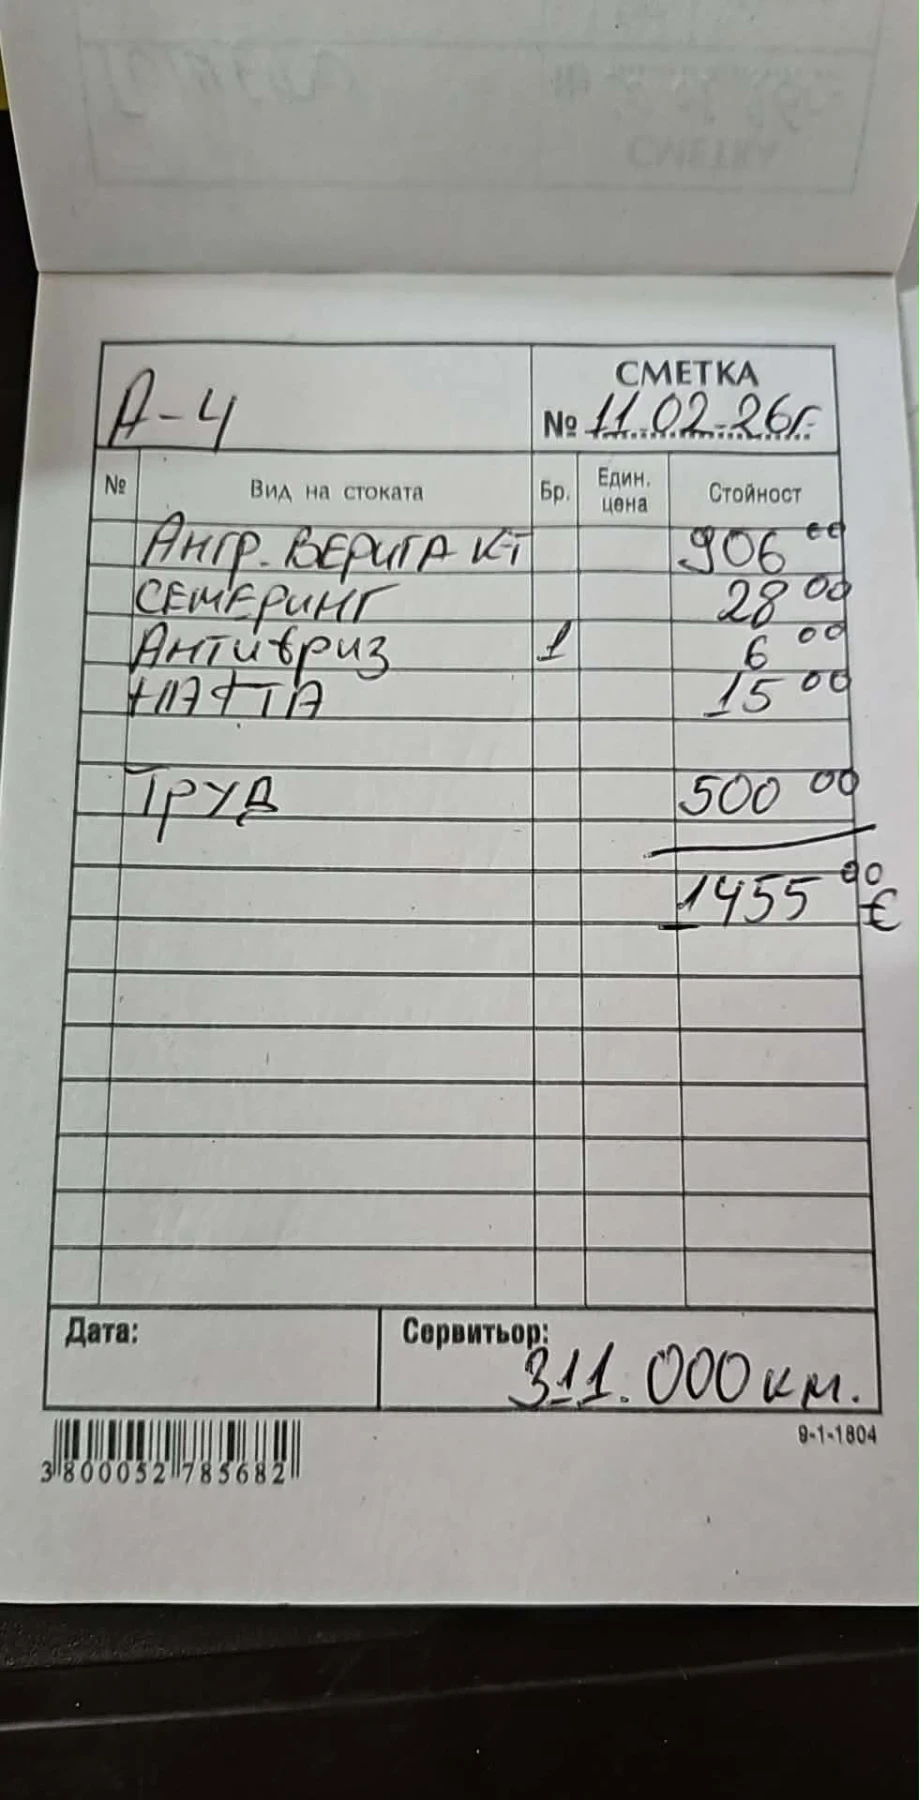 СМЕТКА
А-4
№ 11.02.26г.
№ Вид на стоката Бр. Един. цена Стойност
Ангр. ВЕРИГА К-Т 906 00
СЕМЕРИНГ 28 00
Антифриз 1 6 00
НАФТА 15 00
ТРУД 500 00
1455 00 €
Дата: Сервитьор:
311.000 км.
3 800052 785682
9-1-1804